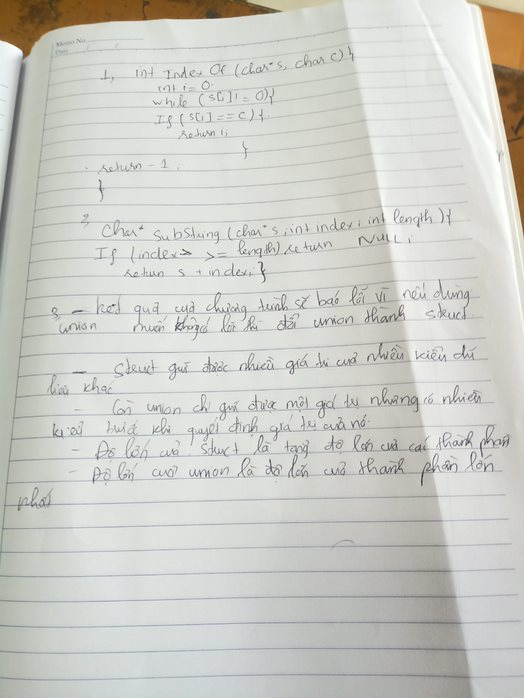 Memo No.
Date / /
1, int Index Of (char* s, char c) {
int i = 0.
while (s[i] != 0) {
If (s[i] == c) {
return i;
}
return -1;
}
2, char* substring (char* s, int index, int length) {
If (index >= length) return NULL;
return s + index; }
3, - kết quả của chương trình sẽ báo lỗi vì nếu dùng
union muốn không có lỗi thì đổi union thành struct
- Struct giữ được nhiều giá trị của nhiều kiểu dữ
liệu khác
- Còn union chỉ giữ được một giá trị nhưng có nhiều
kiểu trước khi quyết định giá trị của nó.
- Độ lớn của Struct là tổng độ lớn của các thành phần
- Độ lớn của union là độ lớn của thành phần lớn
nhất